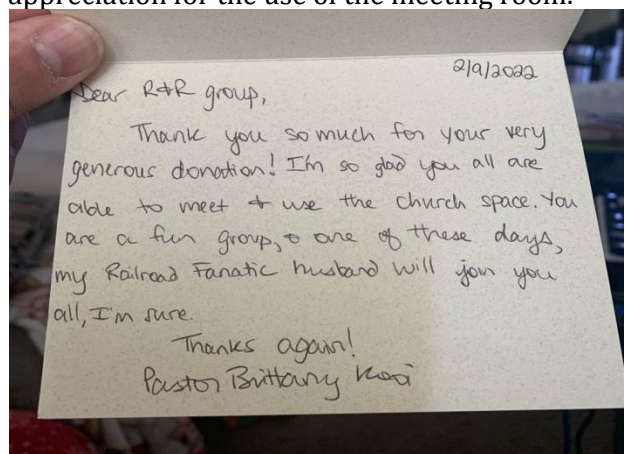 appreciation for the use of the meeting room.
2/9/2022
Dear R&R group,
Thank you so much for your very
generous donation! I'm so glad you all are
able to meet & use the church space. You
are a fun group, & one of these days,
my Railroad Fanatic husband will join you
all, I'm sure.
Thanks again!
Pastor Brittany